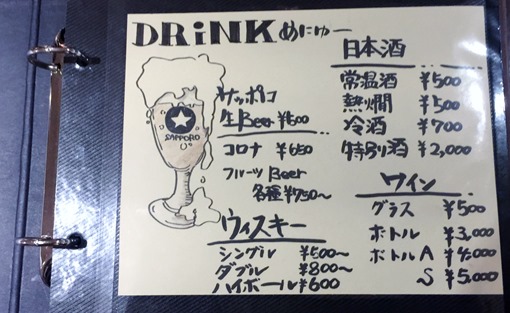 DRiNK めにゅー
サッポロ
生Beer ¥600
SAPPORO
コロナ ¥650
フルーツBeer
各種¥750〜
ウィスキー
シングル ¥500〜
ダブル ¥800〜
ハイボール ¥600
日本酒
常温酒 ¥500
熱燗 ¥500
冷酒 ¥700
特別酒 ¥2,000
ワイン
グラス ¥500
ボトル ¥3,000
ボトル A ¥4,000
S ¥5,000